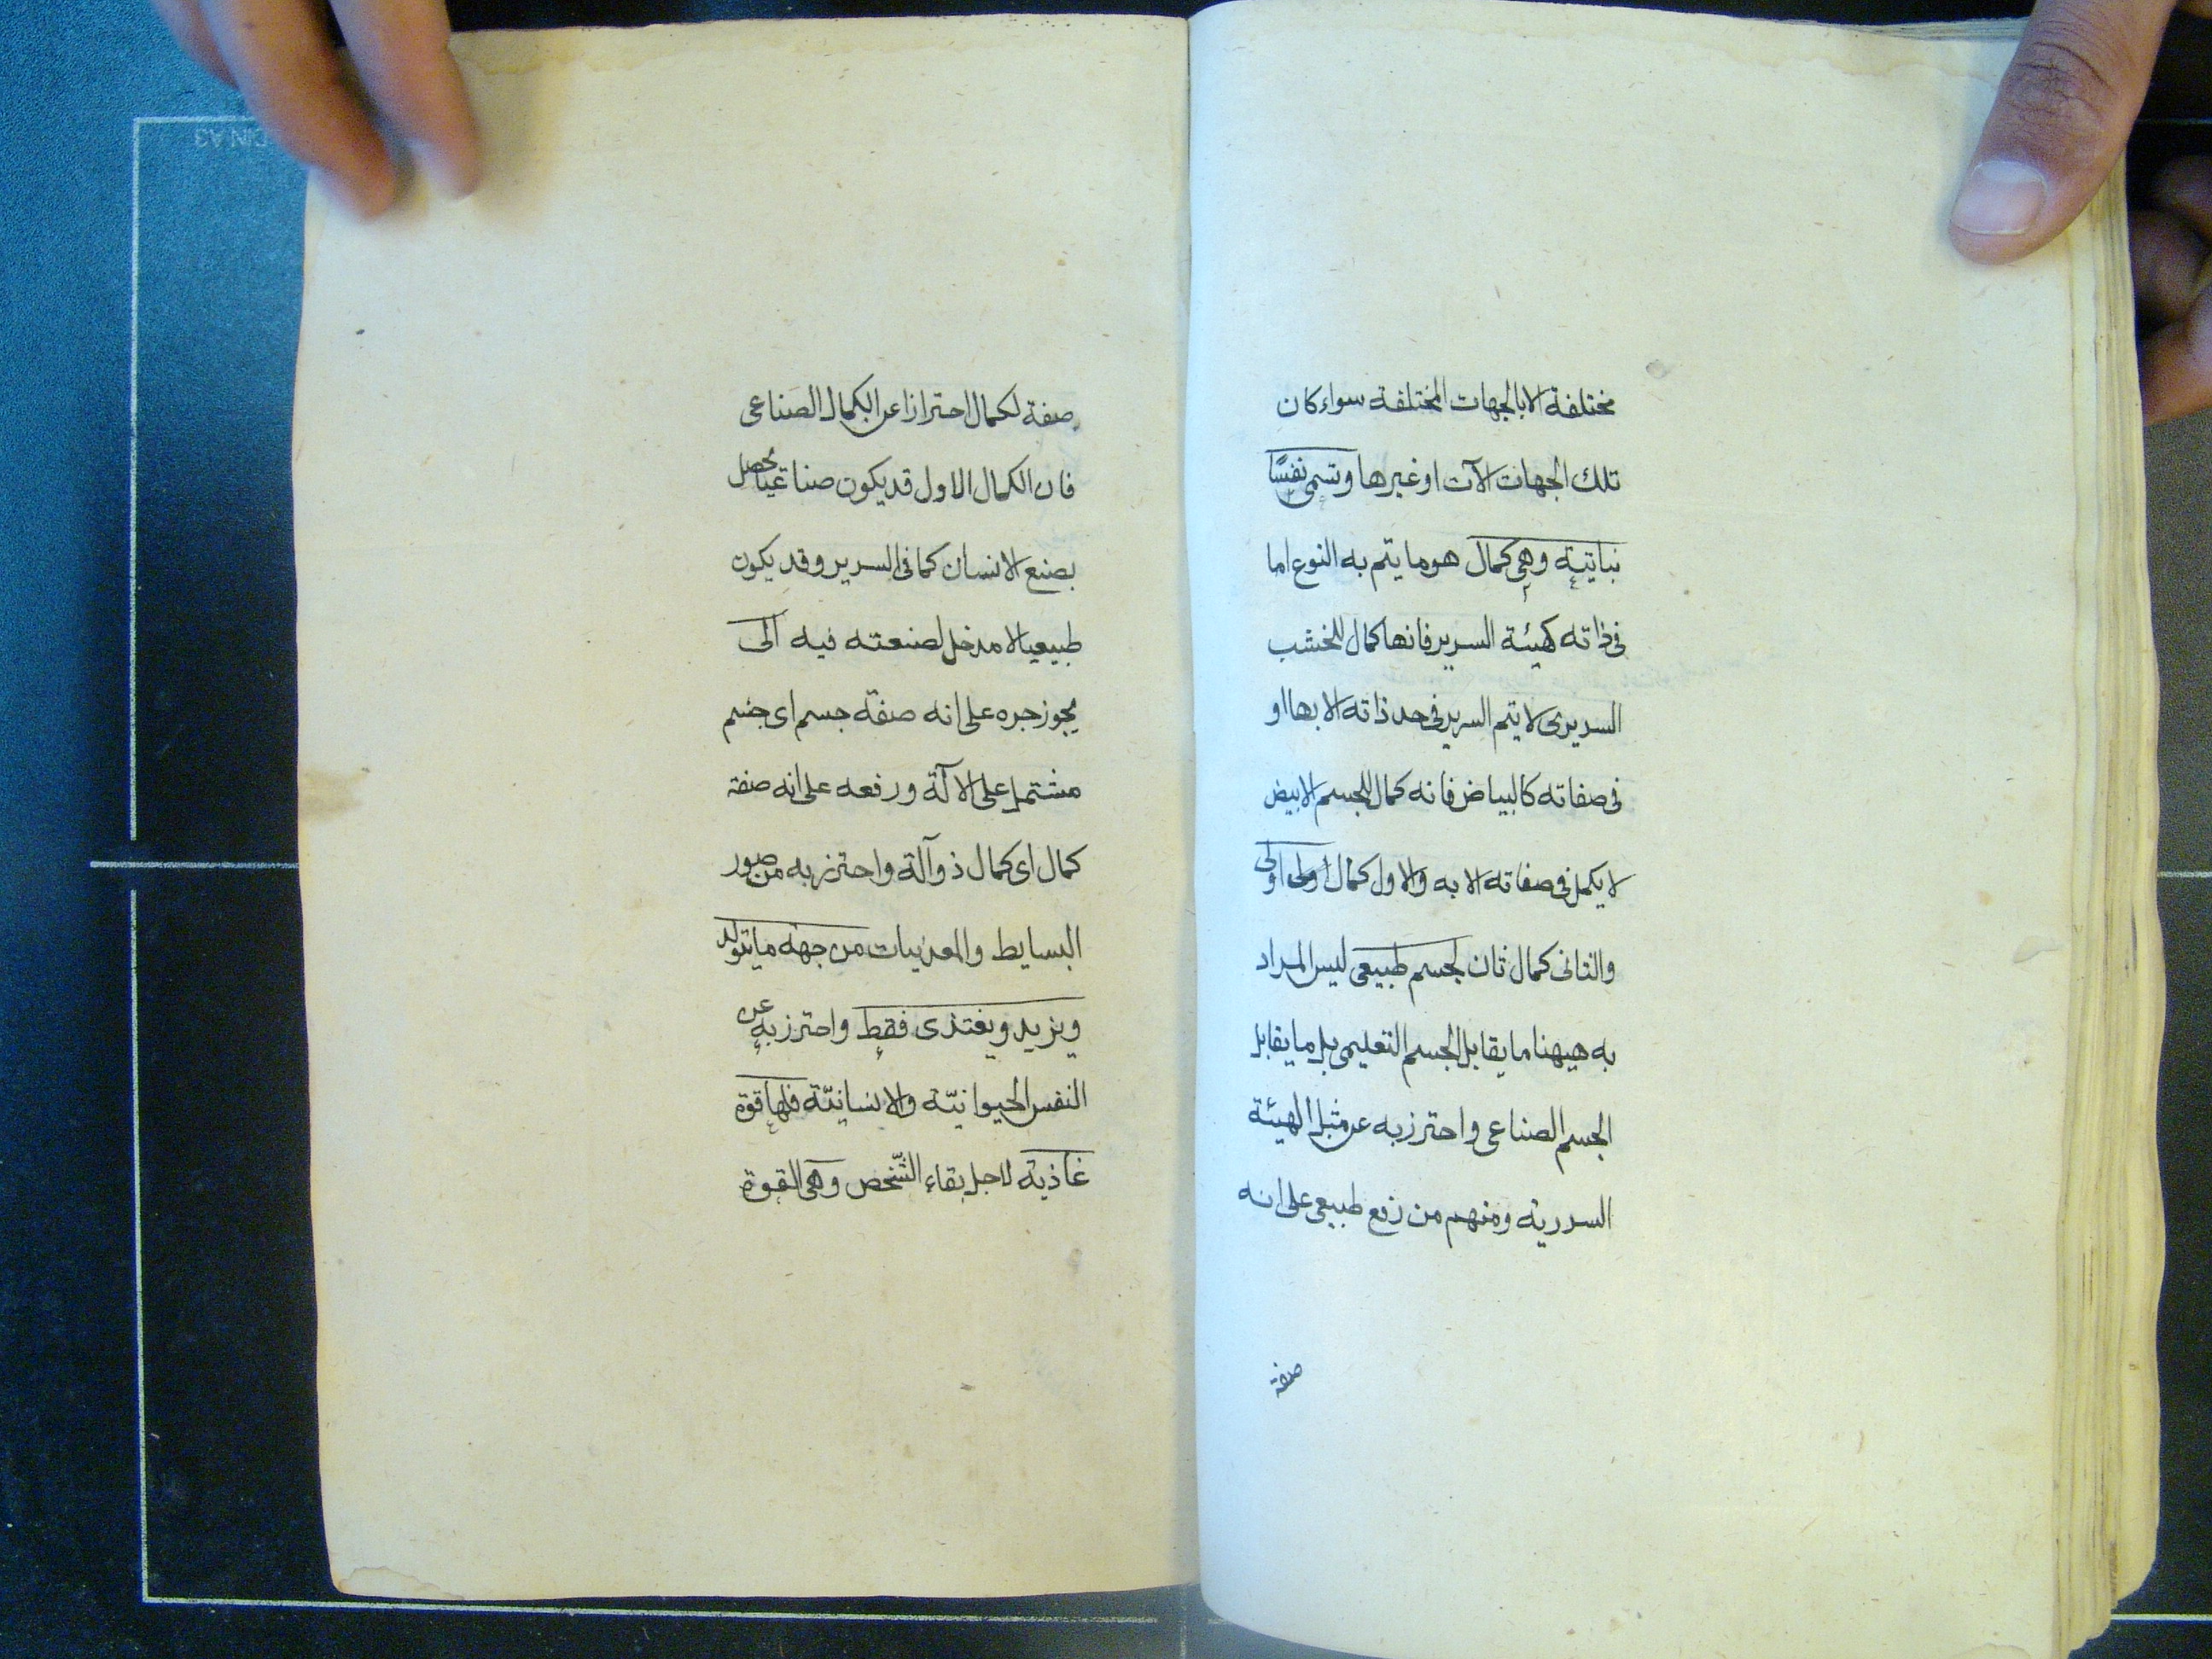 مختلفة الا بالجهات المختلفة سواء كان
تلك الجهات الآت او غيرها وتسمى نفسًا
نباتية وهى كمال هو ما يتم به النوع اما
فى ذاته كهيئة السرير فانها كمال للخشب
السديرى لا يتم السرير فى حد ذاته الا بها او
فى صفاته كالبياض فانه كمال للجسم الابيض
لا يكمل فى صفاته الا به والاول كمال اول اولى
والثانى كمال ثان لجسم طبيعى ليس المراد
به هيهنا ما يقابل الجسم التعليمى بل ما يقابل
الجسم الصناعى واحترز به عن مثل الهيئة
السدرية ومنهم من رفع طبيعى على انه
صفة
صفة لكمال احترازا عن الكمال الصناعى
فان الكمال الاول قد يكون صناعيا يحصل
بصنع الانسان كما فى السرير وقد يكون
طبيعيا لا مدخل لصنعته فيه الى
يجوز جره على انه صفة جسم اى جسم
مشتمل على الآلة ورفعه على انه صفة
كمال اى كمال ذو آلة واحترز به من صور
البسايط والمعدنيات من جهة ما يتولد
ويزيد ويغتذى فقط واحترز به عن
النفس الحيوانيّة والانسانيّة فلها قوة
غاذية لاجل بقاء الشّخص وهى القوة